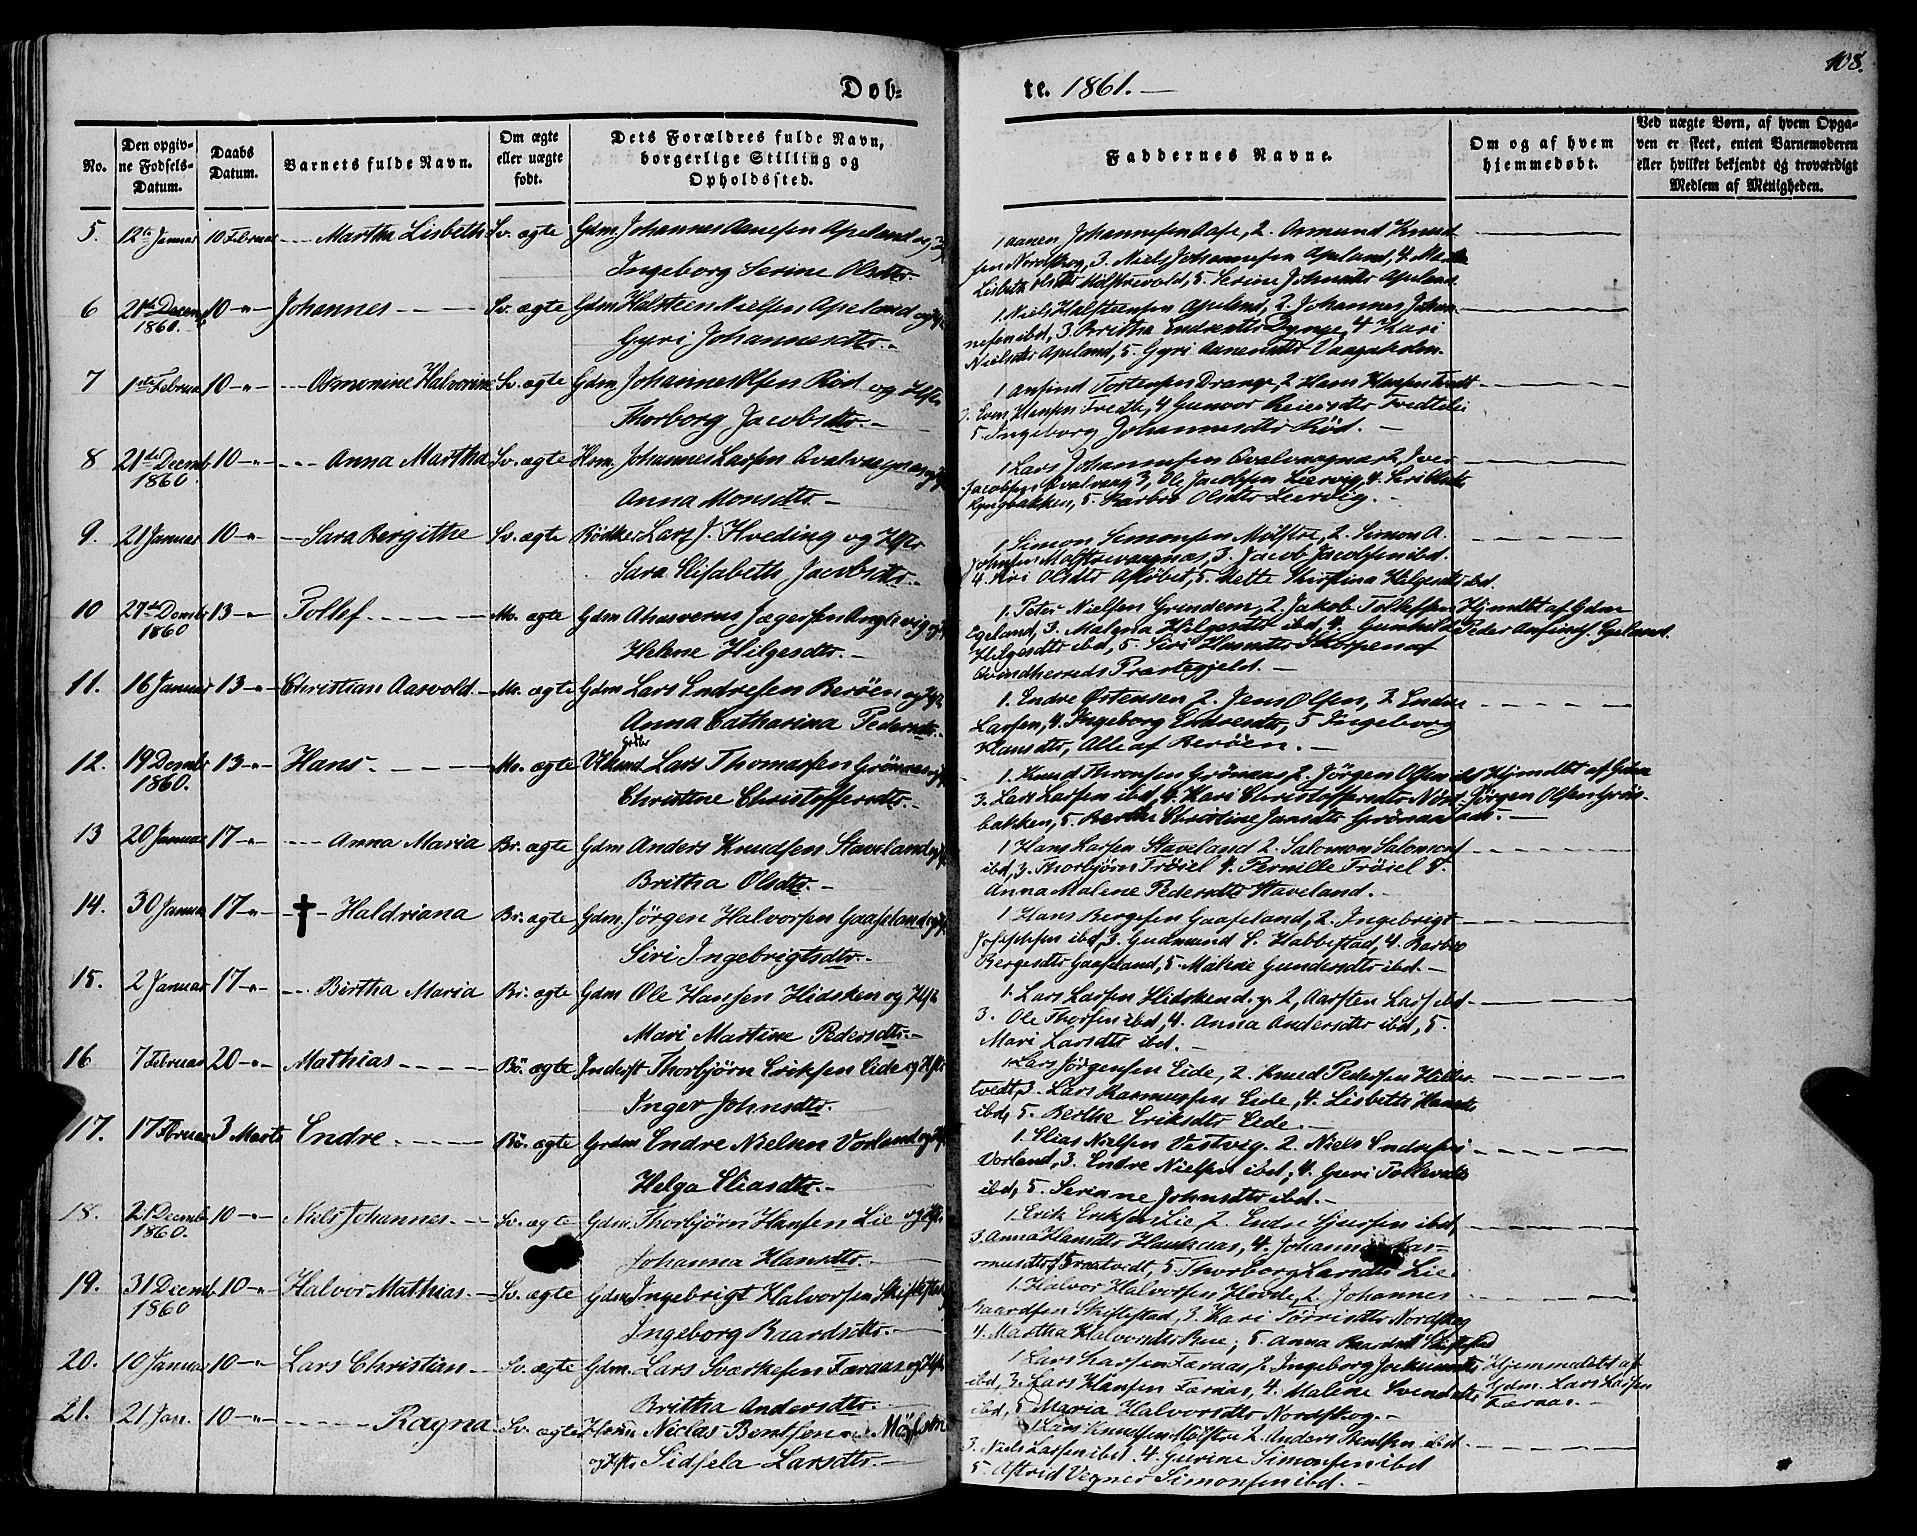 108.
Døb-
te. 1861.
No.
Den opgiv-
ne Fødsels-
Datum.
Daabs
Datum.
Barnets fulde Navn.
Om ægte
eller uægte
født.
Dets Forældres fulde Navn,
borgerlige Stilling og
Opholdssted.
Faddernes Navne.
Om og af hvem
hjemmedøbt.
Ved uægte Børn, af hvem Opga-
ven er skeet, enten Barnemoderen
eller hvilket bekjendt og troværdigt
Medlem af Menigheden.
5. 12te Januar 10 Februar Martha Lisbeth Sv. ægte Gdm Johannes Apeland og
Ingeborg Serine Olsdtr.
1 Johannesen 2. Asmund Knud-
sen Nordskog, 3. Niels Johannesen Apeland, 4.
Lisbeth 5. Serine Apeland
6 21de Decemb 10 -"- Johannes Sv. ægte Gdm Halsteen Nielsen Apeland og
1860.
Gyri Johannesdtr.
1 Niels Halsteensen Apeland, 2 Johannes Johan-
nesen ibd, 3. Britha Endresdtr 4 Kari
Nielsdtr Apeland, 5. Gyri Vaagaholm
7 1ste Februar 10 -"- Halvorine Sv. ægte Gdm Johannes Rød og Hst
Thorborg Jacobsdtr.
1 Anfind Tortensen Drange, 2 Hans Hansen
4 Gunvor Reiersdtr
5. Ingeborg Johannesdtr Rød.
8 21de Decemb 10 -"- Anna Martha Sv. ægte Hsm. Johannes Larsen og
1860.
Anna Monsdtr.
1 Lars Johannesen 2, Iver
Jacobsen 3, Ole Jacobsen 4.
5. Barbro Olsdtr
9. 21 Januar 10 -"- Sara Bergithe Sv. ægte Bødker Lars J. Hveding og Hst
Sara Elisabeth Jacobsdtr.
1. Simon Simonsen Møistre, 2. Simon A.
Johnsen 3. Jacob Jacobsen ibd.
4. Siri Olsdtr 5. Mette Christina Helgesdtr ibd.
10 27de Decmbr 13 -"- Tollef Mo. ægte Gdm Ahasverus Jægersen og
1860
Helene Hilgesdtr.
1. Peter Nielsen Grindem, 2. Jakob Tollefsen Hjmdbt af Gdm
Egeland, 3. Malena Helgesdtr ibd, 4. Gunhild Peder Anfinds. Egeland.
Helgesdtr ibd, 5. Siri Hansdtr af
Qvindherreds Præstegjeld.
11. 16 Januar 13 -"- Christian Aasvold Mo. ægte Gdm Lars Endresen Berøen og Hst
Anna Catharina Pedersdtr.
1. Endre Østensen 2. Jens Olsen, 3. Endre
Larsen, 4. Ingeborg Endresdtr, 5 Ingeborg
Klausdtr, Alle af Berøen.
12. 19 Decmbr 13 -"- Hans Mo. ægte Lars Thomassen Grønaas og
1860.
Christine Christoffersdtr.
1. Knud Thomsen Grønaas 2. Jørgen Olsen ibd Hjmdbt af Gdm
3. Lars Larsen ibd, 4. Kari Christoffersdtr Jørgen Olsen Grøn-
bakken, 5. Berthe Christine Jansdtr Grønaas
13 20 Januar 17 -"- Anna Maria Br. ægte Gdm Anders Knudsen Staveland og
Britha Olsdtr.
1 Hans Larsen Staveland 2. Salomon Salomons
ibd, 3. Thorbjørn Trøiel 4. Pernille Trøiel 5.
Anna Malene Pedersdtr Staveland.
14. 30 Januar 17 -"- Haldriana Br. ægte Gdm. Jørgen Halvorsen Gaaseland og
Siri Ingebrigtsdtr.
1 Hans Bergesen Gaaseland, 2. Ingebrigt
Josephsen ibd, 3. Gudmund S. Habbestad, 4. Barbro
Bergesdtr Gaaseland, 5. Malene Gundersdtr ibd.
15. 2 Januar 17 -"- Birtha Maria Br. ægte Gdm Ole Hansen Hidsken og Hst
Mari Martine Pedersdtr.
1. Lars Larsen Hidsken d. y. 2, Aarsten Lars ibd
3. Ole Thorsen ibd, 4. Anna Andersdtr ibd, 5.
Mari Larsdtr ibd.
16 7 Februar 20 -"- Mathias Bø. ægte Inderst Thorbjørn Eriksen Eide og Hst
Inger Johnsdtr.
1. Lars Jørgensen Eide, 2. Knud Pedersen Hille-
tvedt, 3. Lars Rasmussen Eide, 4. Lisbeth Hansdtr
ibd, 5. Berthe Eriksdtr Eide.
17. 17 Februar 3 Marts Endre Bø. ægte Grdm Endre Nielsen Vorland og
Helga Eliasdtr.
1. Elias Nielsen Vestvig. 2. Niels Endresen
Vorland, 3. Endre Nielsen ibd, 4. Guri Tollevsdtr
ibd, 5. Seriane Johnsdtr ibd.
18. 21 Decemb 10 -"- Niels Johannes Sv. ægte Gdm. Thorbjørn Hansen Lie og Hst
1860.
Johanna Hansdtr.
1. Erik Eriksen Lie 2. Endre ibd,
3. Anna Hansdtr Haukaas, 4. Johanna Ras-
musdtr 5. Thorborg Larsdtr Lie
19. 31 Decemb 10 -"- Halvor Mathias Sv. ægte Gdm Ingebrigt Halvorsen Skistestad
1860
Ingeborg Baardsdtr.
1. Halvor Halvorsen Hovde, 2. Johannes
Baardsen Skistestad, 3. Kari Tørrisdtr Nordskog
4. Martha Halvorsdtr 5. Anna Baardsdtr Skistestad
20. 10 Januar 10 -"- Lars Christian Sv. ægte Gdm. Lars Færaas og Hst
Britha Andersdtr.
1 Lars Larsen Færaas, 2. Ingeborg Hjemmedøbt af
ibd, 3. Lars Hansen Færaas, 4. Malene Svendsdtr Gdm. Lars Larsen
ibd, 5 Maria Halvorsdtr Nordskog. Færaas.
21. 21 Jan. 10 -"- Ragna Sv. ægte Hsmd Niclas Bentsen Møistre
og Hst Sidsela Larsdtr.
1 Lars Knudsen Møistre 2. Anders Bentsen ibd
3. Niels Larsen ibd. 4. Gurine Simonsen ibd
5. Astrid Vegner Simonsen ibd.